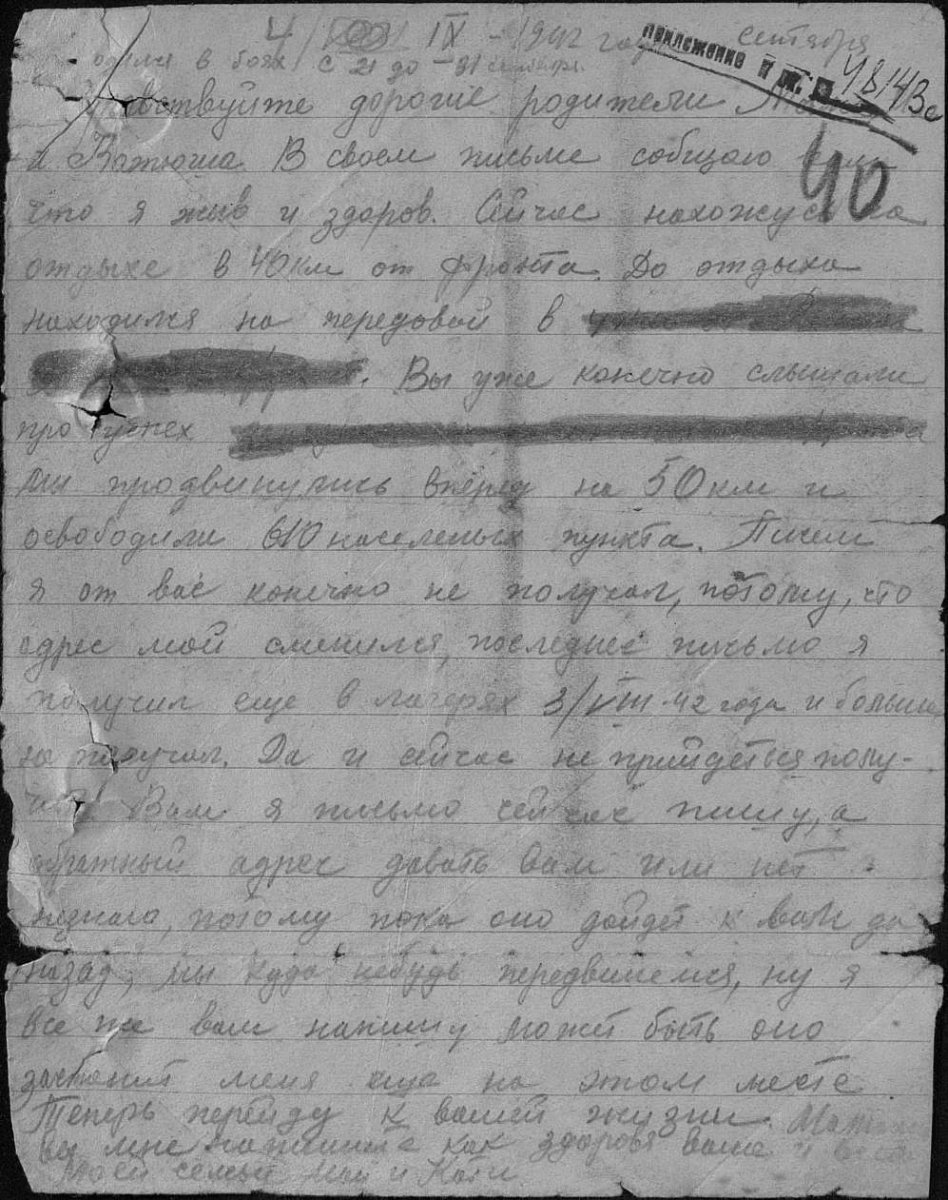 4/ IX - 1942 года сентября
в боях с 21 до 31
приложение
Здравствуйте дорогие родители
и Ватюша В своем письме собщаю
что я жыв и здоров. Сейчас нахожусь на
отдыхе в 40 км от фронта. До отдыха
находился на передовой в
Вы уже конечно слышали
про успех
мы продвинулись вперед на 50 км и
освободили 610 населеных пункта. Писем
я от вас конечно не получал, потому, что
адрес мой сменился, последнее письмо я
получил еще в лагерях 3/VIII 42 года и больше
не получал. Да и сейчас не прийдеться полу-
Вам я письмо сейчас пишу, а
обратный адрес давать вам или нет
незнаю, потому пока оно дойдет к вам да
назад, мы куда небудь передвинемся, ну я
все же вам напишу может быть оно
застанит меня еще на этом месте
Теперь перейду к вашей жизни.
вы мне напишите как здоровя ваше и
моей семьи Маи и Кати
40